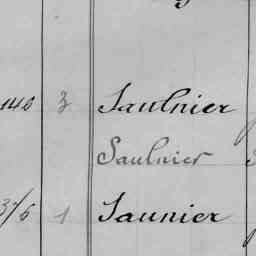 140 3 Saulnier
Saulnier
1 Saunier